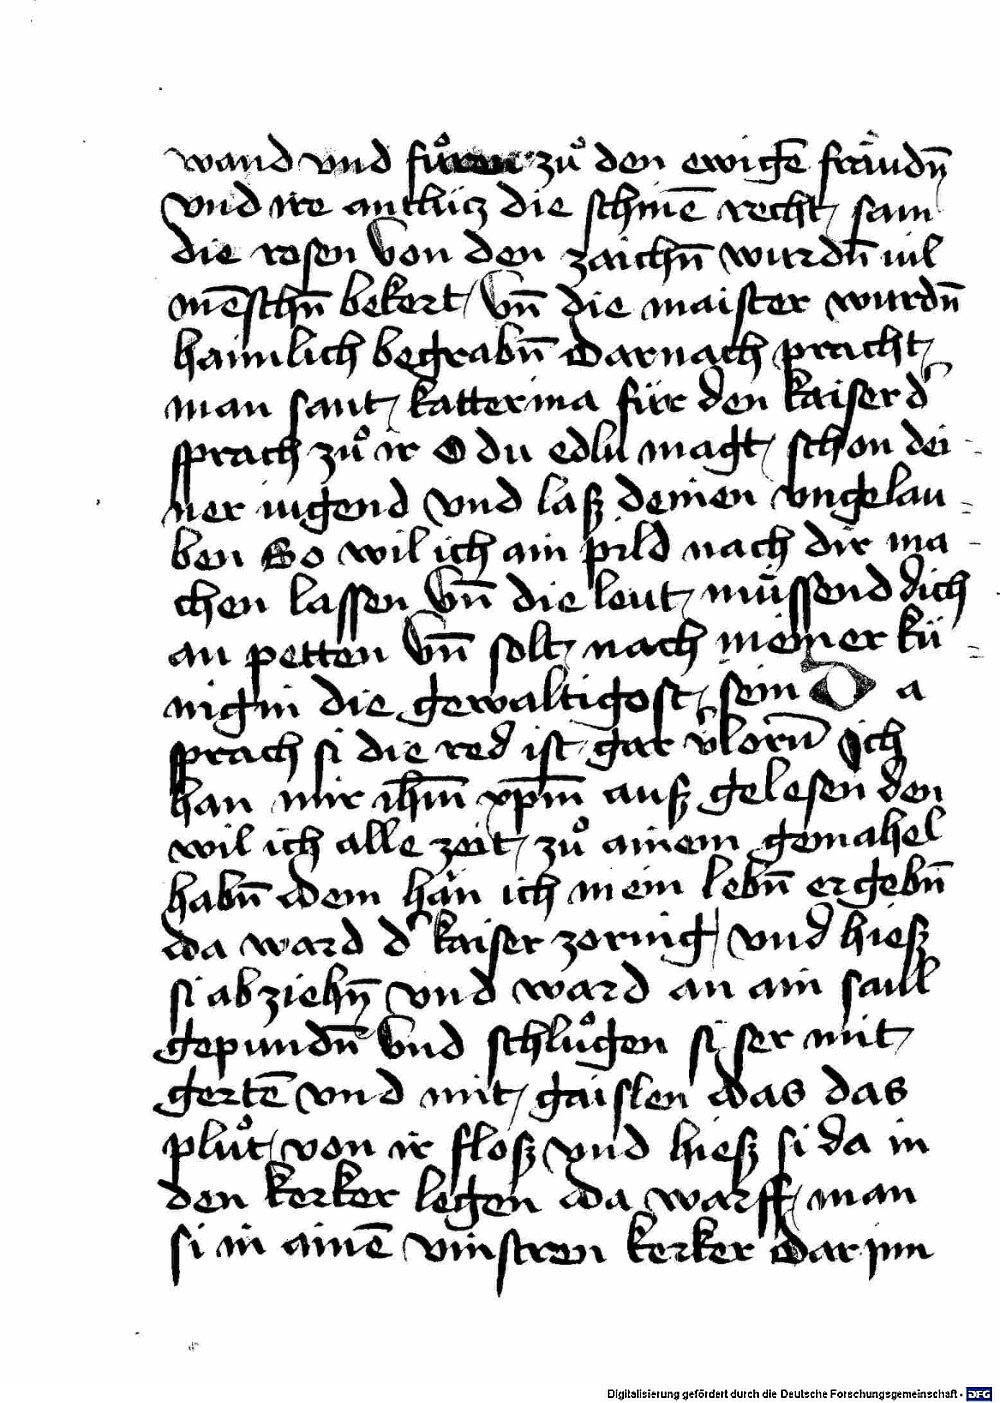 wand vnd fuͦren zuͦ den ewigē fräudn̄
vnd ire antlücz die schinē recht sam
die rosen von den zaichn̄ wurdn̄ uil
mēschn̄ bekert vn̄ die maister wurdn̄
haimlich begrabn̄ Darnach pracht
man sant katterina für den kaiser d̕
sprach zuͦ ir O du edlu magt schon dei-
ner iugend vnd laß deinen vngelau-
ben So wil ich ain pild nach dir ma-
chen lassen vn̄ die leut müssend dich
an petten vn̄ solt nach meiner kü-
nigin die gewaltigost sein Da
sprach si die red ist gar v̕lorn̄ Ich
han mir ih̄m xp̄m auß gelesen den
wil ich alle zeit zuͦ ainem gemahel
habn̄ dem hän ich mein lebn̄ ergebn̄
da ward d̕ kaiser zornig vnd hieß
si abziehn̄ vnd ward an ain saull
gepundn̄ vnd schluͦgen si ser mit
gertē vnd mit gaislen das das
pluͦt von ir floß vnd hieß si da in
den kerker legen da warff man
si in ainē vinstren kerker dar jnn
Digitalisierung gefördert durch die Deutsche Forschungsgemeinschaft - DFG